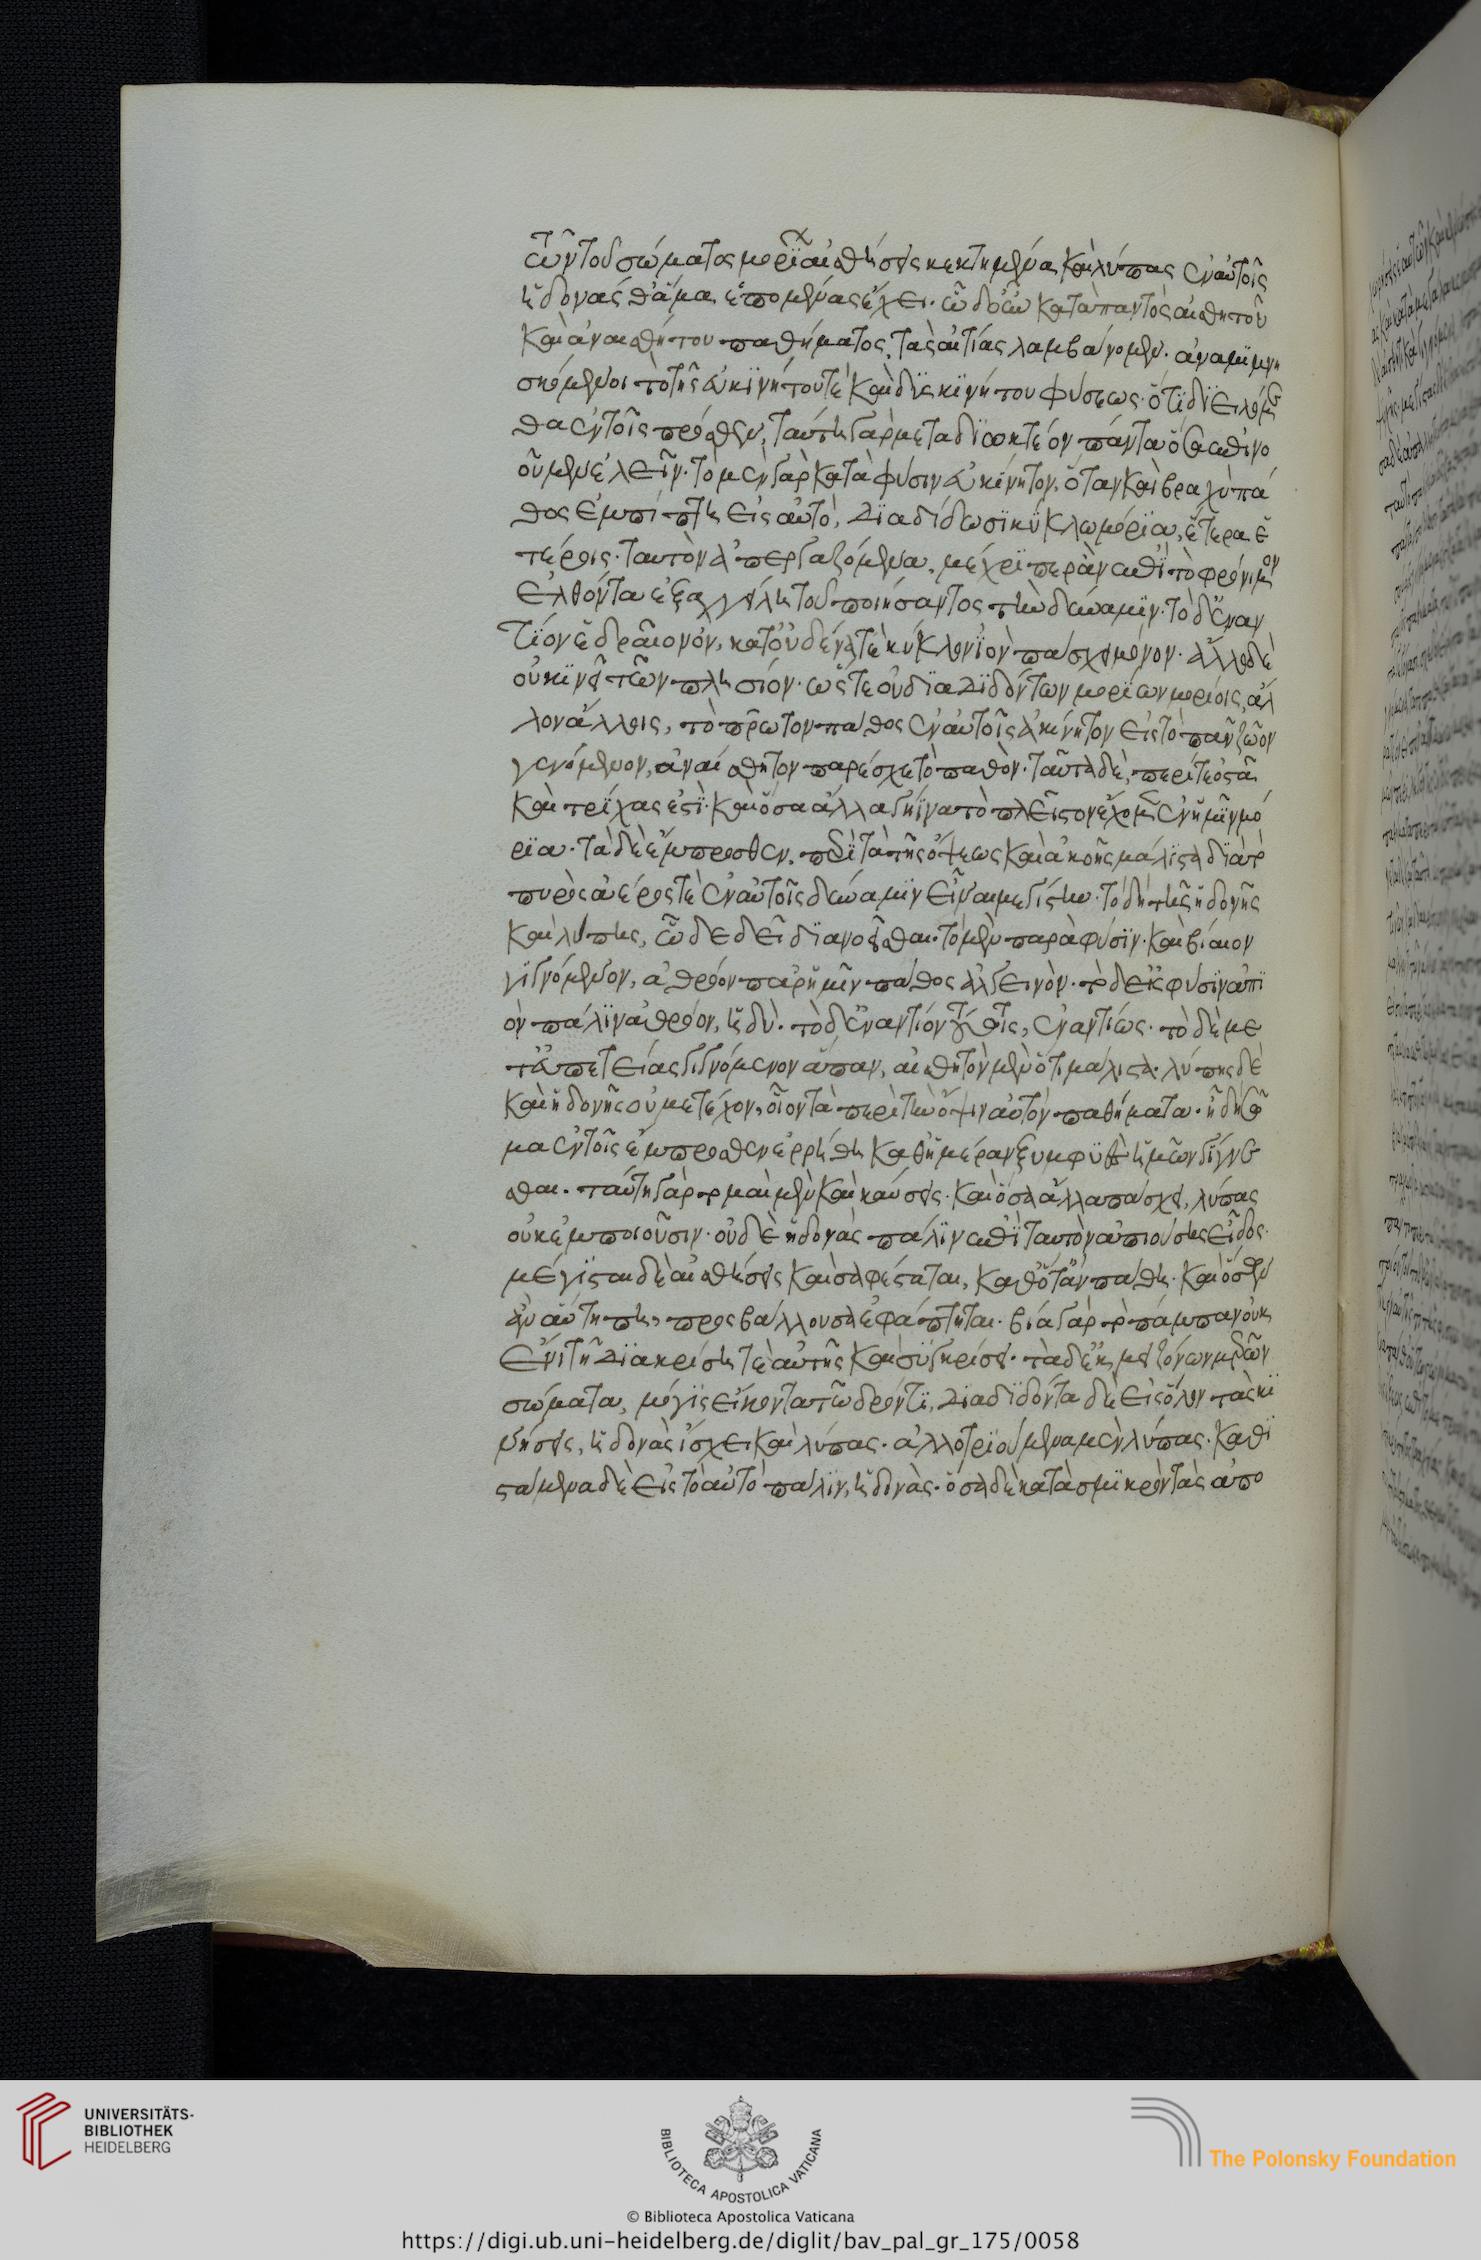 τῶν τοῦ σώματος μορίων αἰσθήσεις κεκτημένα καὶ λύπας ἐν αὐτοῖς
ἡδονάς θ᾽ ἅμα ἑπομένας ἔχει. ὧδ᾽ οὖν κατὰ παντὸς αἰσθητοῦ
καὶ ἀναισθήτου παθήματος, τὰς αἰτίας λαμβάνομεν. ἀναμιμνη
σκόμενοι τὸ τῆς εὐκινήτου τὲ καὶ δυσκινήτου φύσεως. ὅτι διειλόμε
θα ἐν τοῖς πρόσθεν, ταύτη γὰρ μεταδιωκτέον πάντα ὅσα ἐπινο
οῦμεν ἑλεῖν. τὸ μὲν γὰρ κατὰ φύσιν εὐκίνητον, ὅταν καὶ βραχὺ πά
θος ἐμπίπτη εἰς αὐτὸ, διαδίδωσι κύκλω μόρια, ἕτερα ἑ
τέροις. ταυτὸν ἀπεργαζόμενα, μέχρι περ ἂν ἐπὶ τὸ φρόνιμον
ἐλθόντα ἐξαγγείλη τοῦ ποιήσαντος τὴν δύναμιν. τὸ δ᾽ ἐναν
τίον ἑδραῖον ὂν, κατ᾽ οὐδένα τὲ κύκλον ἰὸν πάσχει μόνον. ἄλλο δὲ
οὐ κινεῖ τῶν πλησίον. ὥστε οὐ διαδιδόντων μορίων μορίοις, ἄλ
λον ἄλλοις, τὸ πρῶτον πάθος ἐν αὐτοῖς ἀκίνητον εἰς τὸ πᾶν ζῶον
γενόμενον, ἀναίσθητον παρέσχε τὸ παθὸν. ταῦτα δὲ, περί τε ὀστᾶ
καὶ τρίχας ἐστὶ. καὶ ὅσα ἄλλα γήϊνα τὸ πλεῖστον ἔχομεν ἐν ἡμῖν μό
ρια. τὰ δὲ ἔμπροσθεν, περὶ τὰ τῆς ὄψεως καὶ ἀκοῆς μάλιστα διὰ τὸ
πυρὸς ἀέρος τὲ ἐν αὐτοῖς δύναμιν εἶναι μεγίστην. τὸ δὴ τῆς ἡδονῆς
καὶ λύπης, ὧδε δεῖ διανοεῖσθαι. τὸ μὲν παρὰ φύσιν. καὶ βίαιον
γιγνόμενον, ἀθρόον παρ᾽ ἡμῖν πάθος ἀλγεινὸν. τὸ δ᾽ εἰς φύσιν ἀπι
ὸν πάλιν ἀθρόον, ἡδὺ. τὸ δ᾽ ἐναντίον τούτοις, ἐναντίως. τὸ δὲ με
τ᾽ εὐπετείας γιγνόμενον ἅπαν, αἰσθητὸν μὲν ὅτι μάλιστα. λύπης δὲ
καὶ ἡδονῆς οὐ μετέχον, οἷον τὰ περὶ τὴν ὄψιν αὐτὸν παθήματα. ἣ δὴ σῶ
μα ἐν τοῖς ἔμπροσθεν ἐρρήθη καθ᾽ ἡμέραν ξυμφυὲς ἡμῶν γίγνε
σθαι. ταύτη γὰρ τομαὶ μὲν καὶ καύσεις. καὶ ὅσα ἄλλα πάσχει, λύπας
οὐκ ἐμποιοῦσιν. οὐδὲ ἡδονὰς πάλιν ἐπὶ ταυτὸν ἀπιούσης εἶδος.
μέγισται δὲ αἰσθήσεις καὶ σαφέσταται, καθ᾽ ὅτ᾽ ἂν πάθη. καὶ ὅσων
ἂν αὐτή πη, προσβάλλουσα ἐφάπτηται. βία γὰρ τὸ πάμπαν οὐκ
ἔνι τῆ διακρίσει τὲ αὐτῆς καὶ συγκρίσει. τὰ δ᾽ ἐκ μειζόνων μερῶν
σώματα, μόγις εἴκοντα τῶ δρῶντι, διαδιδόντα δὲ εἰς ὅλον τὰς κι
νήσεις, ἡδονὰς ἴσχει καὶ λύπας. ἀλλοτριούμενα μὲν λύπας. καθι
στάμενα δὲ εἰς τὸ αὐτὸ πάλιν, ἡδονὰς. ὅσα δὲ κατὰ σμικρὸν τὰς ἀπο
UNIVERSITÄTS-
BIBLIOTHEK
HEIDELBERG
BIBLIOTECA APOSTOLICA VATICANA
The Polonsky Foundation
© Biblioteca Apostolica Vaticana
https://digi.ub.uni-heidelberg.de/diglit/bav_pal_gr_175/0058